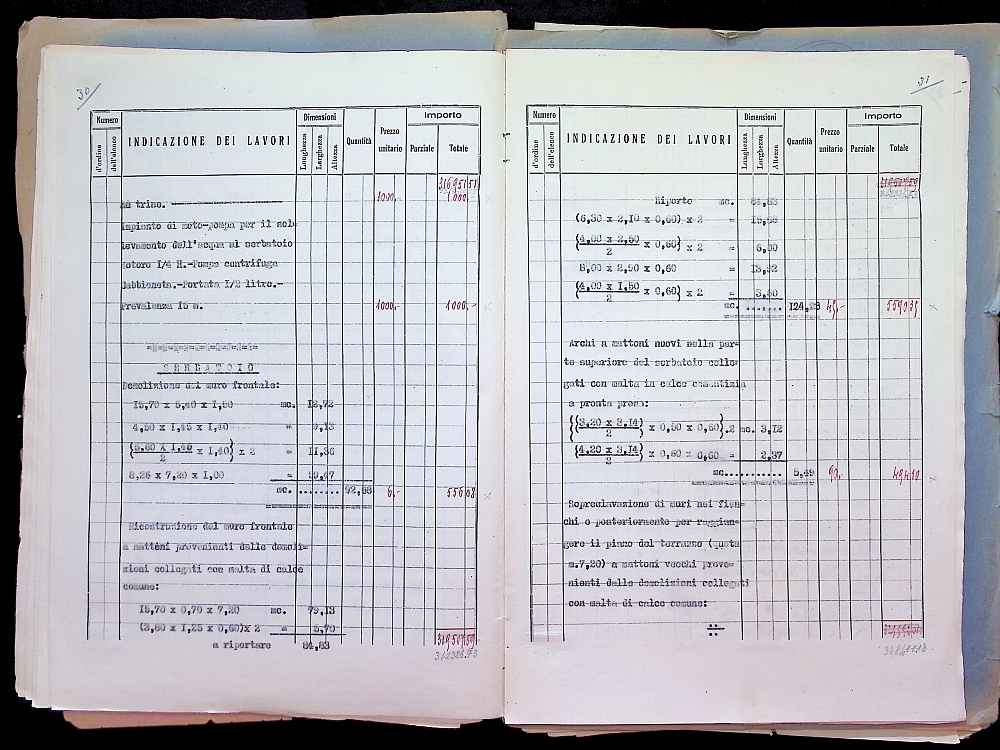 30
Numero
d'ordine
dell'elenco
INDICAZIONE DEI LAVORI
Dimensioni
Lunghezza
Larghezza
Altezza
Quantità
Prezzo unitario
Importo
Parziale
Totale
trino. 1000,- 1000,-
Impianto di moto-pompa per il sol-
levamento dell'acqua al serbatoio
Motore I/4 H.-Pompa centrifuga
Gabbioneta.-Portata I/2 litro.-
Prevalenza I5 m. 1000,- 1000,-
SERBATOIO
Demolizione del muro frontale:
I5,70 x 5,40 x I,50 mc.
4,50 x I,45 x I,40 = 9,13
(5,60 x I,45 / 2 x I,40) x 2 = II,36
8,26 x 7,20 x I,00 = 59,47
mc. ....... 92,68 6,- 556,08
Ricostruzione del muro frontale
a mattoni provenienti dalle demoli=
zioni collegati con malta di calce
comune:
I5,70 x 0,70 x 7,20 mc. 79,13
(3,80 x I,25 x 0,60)x 2 = 5,70
a riportare 84,83
31
Numero
d'ordine
dell'elenco
INDICAZIONE DEI LAVORI
Dimensioni
Lunghezza
Larghezza
Altezza
Quantità
Prezzo unitario
Importo
Parziale
Totale
Riporto mc. 84,83
(6,30 x 2,I0 x 0,60) x 2 =
(4,00 x 2,50 / 2 x 0,60) x 2 = 6,00
8,00 x 2,90 x 0,60 = I3,92
(4,00 x I,50 / 2 x 0,60) x 2 = 3,60
mc. ...... 124,23 45,-
Archi a mattoni nuovi nella par-
te superiore del serbatoio colle-
gati con malta in calce cementizia
a pronta presa:
((3,20 x 3,I4) / 2 x 0,50 x 0,60).2 mc. 3,I2
(4,20 x 3,I4 / 2) x 0,60 x 0,60 = 2,37
mc........... 5,49 90,- 494,10
Sopraelavazione di muri nei fian-
chi e posteriormente per raggiun-
gere il piano del terrazzo (quota
m.7,20) a mattoni vecchi prove-
nienti dalle demolizioni collegati
con malta di calce comune: